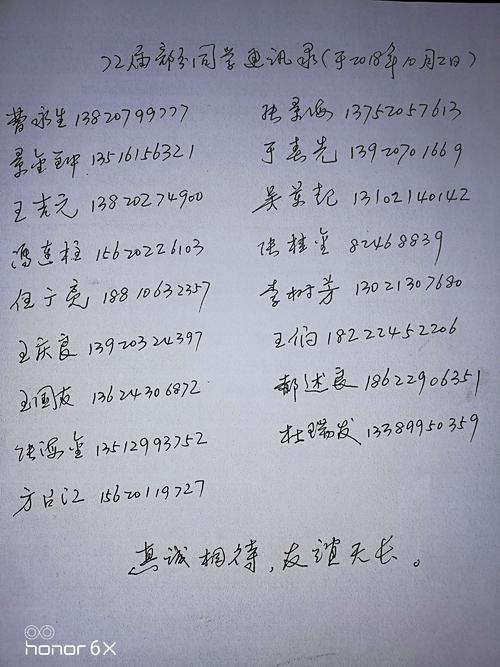 72届部分同学通讯录(于2018年10月2日)
曹永生 13820799777 张景海 13752057613
景金钟 13516156321 于春先 13920701669
王吉元 13820274900 吴景起 13102140142
冯连柱 15620226103 张桂金 82468839
任广亮 18810632357 李树芳 13021307680
王庆良 13920324397 王伯 18222452206
王国友 13624306872 郝述良 18622906351
张海金 13512993752 杜瑞发 13389950359
方占江 15620119727
真诚相待,友谊天长。
honor 6X